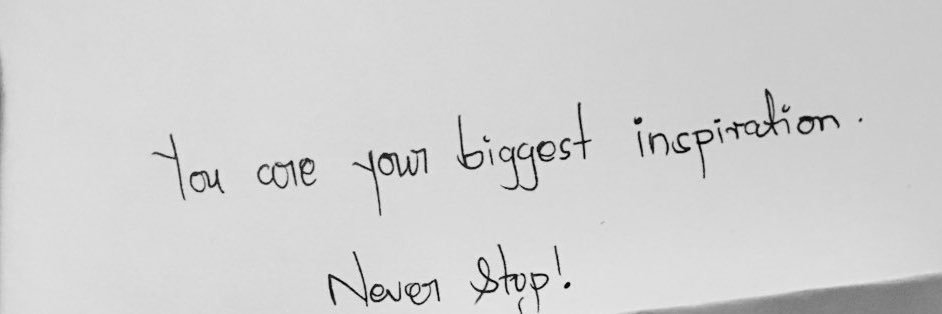 You are your biggest inspiration.
Never Stop!